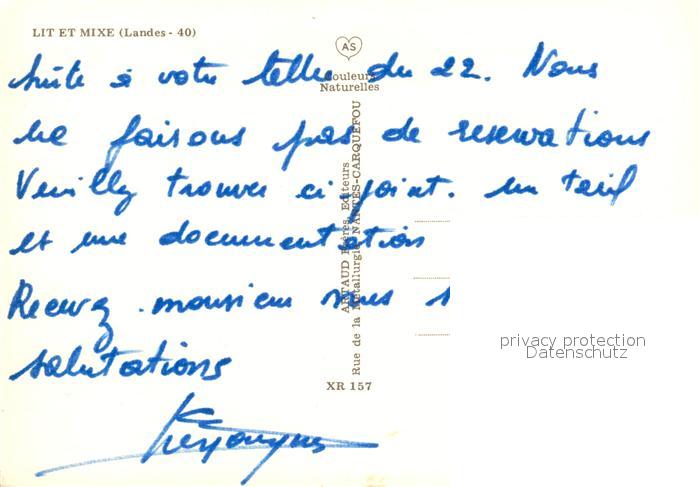 LIT ET MIXE (Landes - 40)
AS
Couleurs
Naturelles
suite à votre lettre du 22. Nous
ne faisons pas de reservations
Veuillez trouver ci joint. un tarif
et une documentation
Recevez monsieur nos
salutations
ARTAUD Frères, Editeurs
Rue de la Métallurgie NANTES-CARQUEFOU
XR 157
privacy protection
Datenschutz